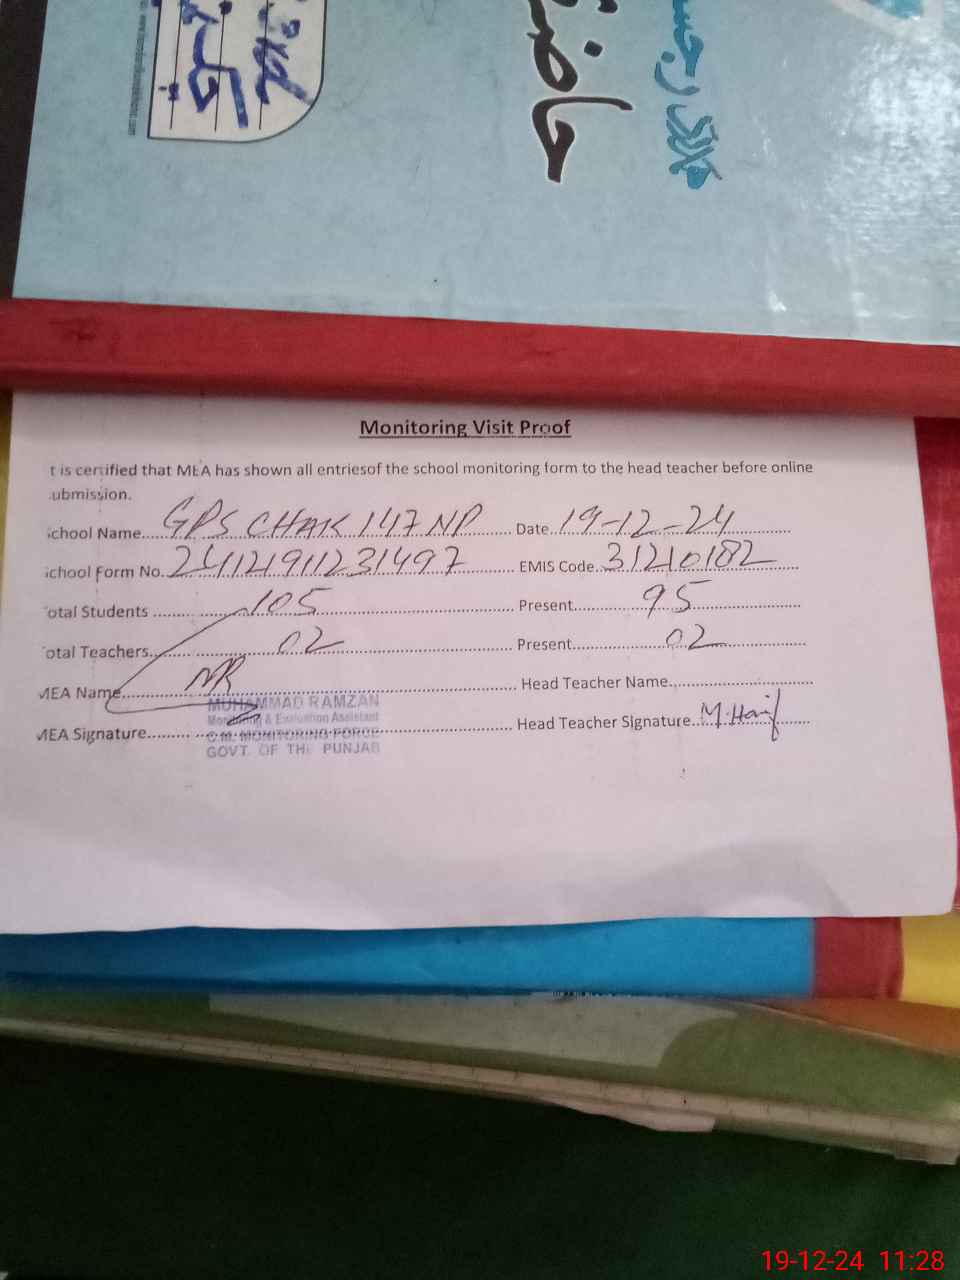 حاضر
Monitoring Visit Proof
t is certified that MEA has shown all entriesof the school monitoring form to the head teacher before online
ubmission.
chool Name....GPS CHAK 147 NP.... Date..19-12-24
chool Form No..24121911231497.... EMIS Code..31210182
otal Students ....105.... Present....95
otal Teachers....02.... Present....02
MEA Name.... Head Teacher Name....
MUHAMMAD RAMZAN
Monitoring & Evaluation Assistant
MEA Signature.... Head Teacher Signature..M.Hanif
C.M. MONITORING FORCE
GOVT. OF THE PUNJAB
19-12-24 11:28